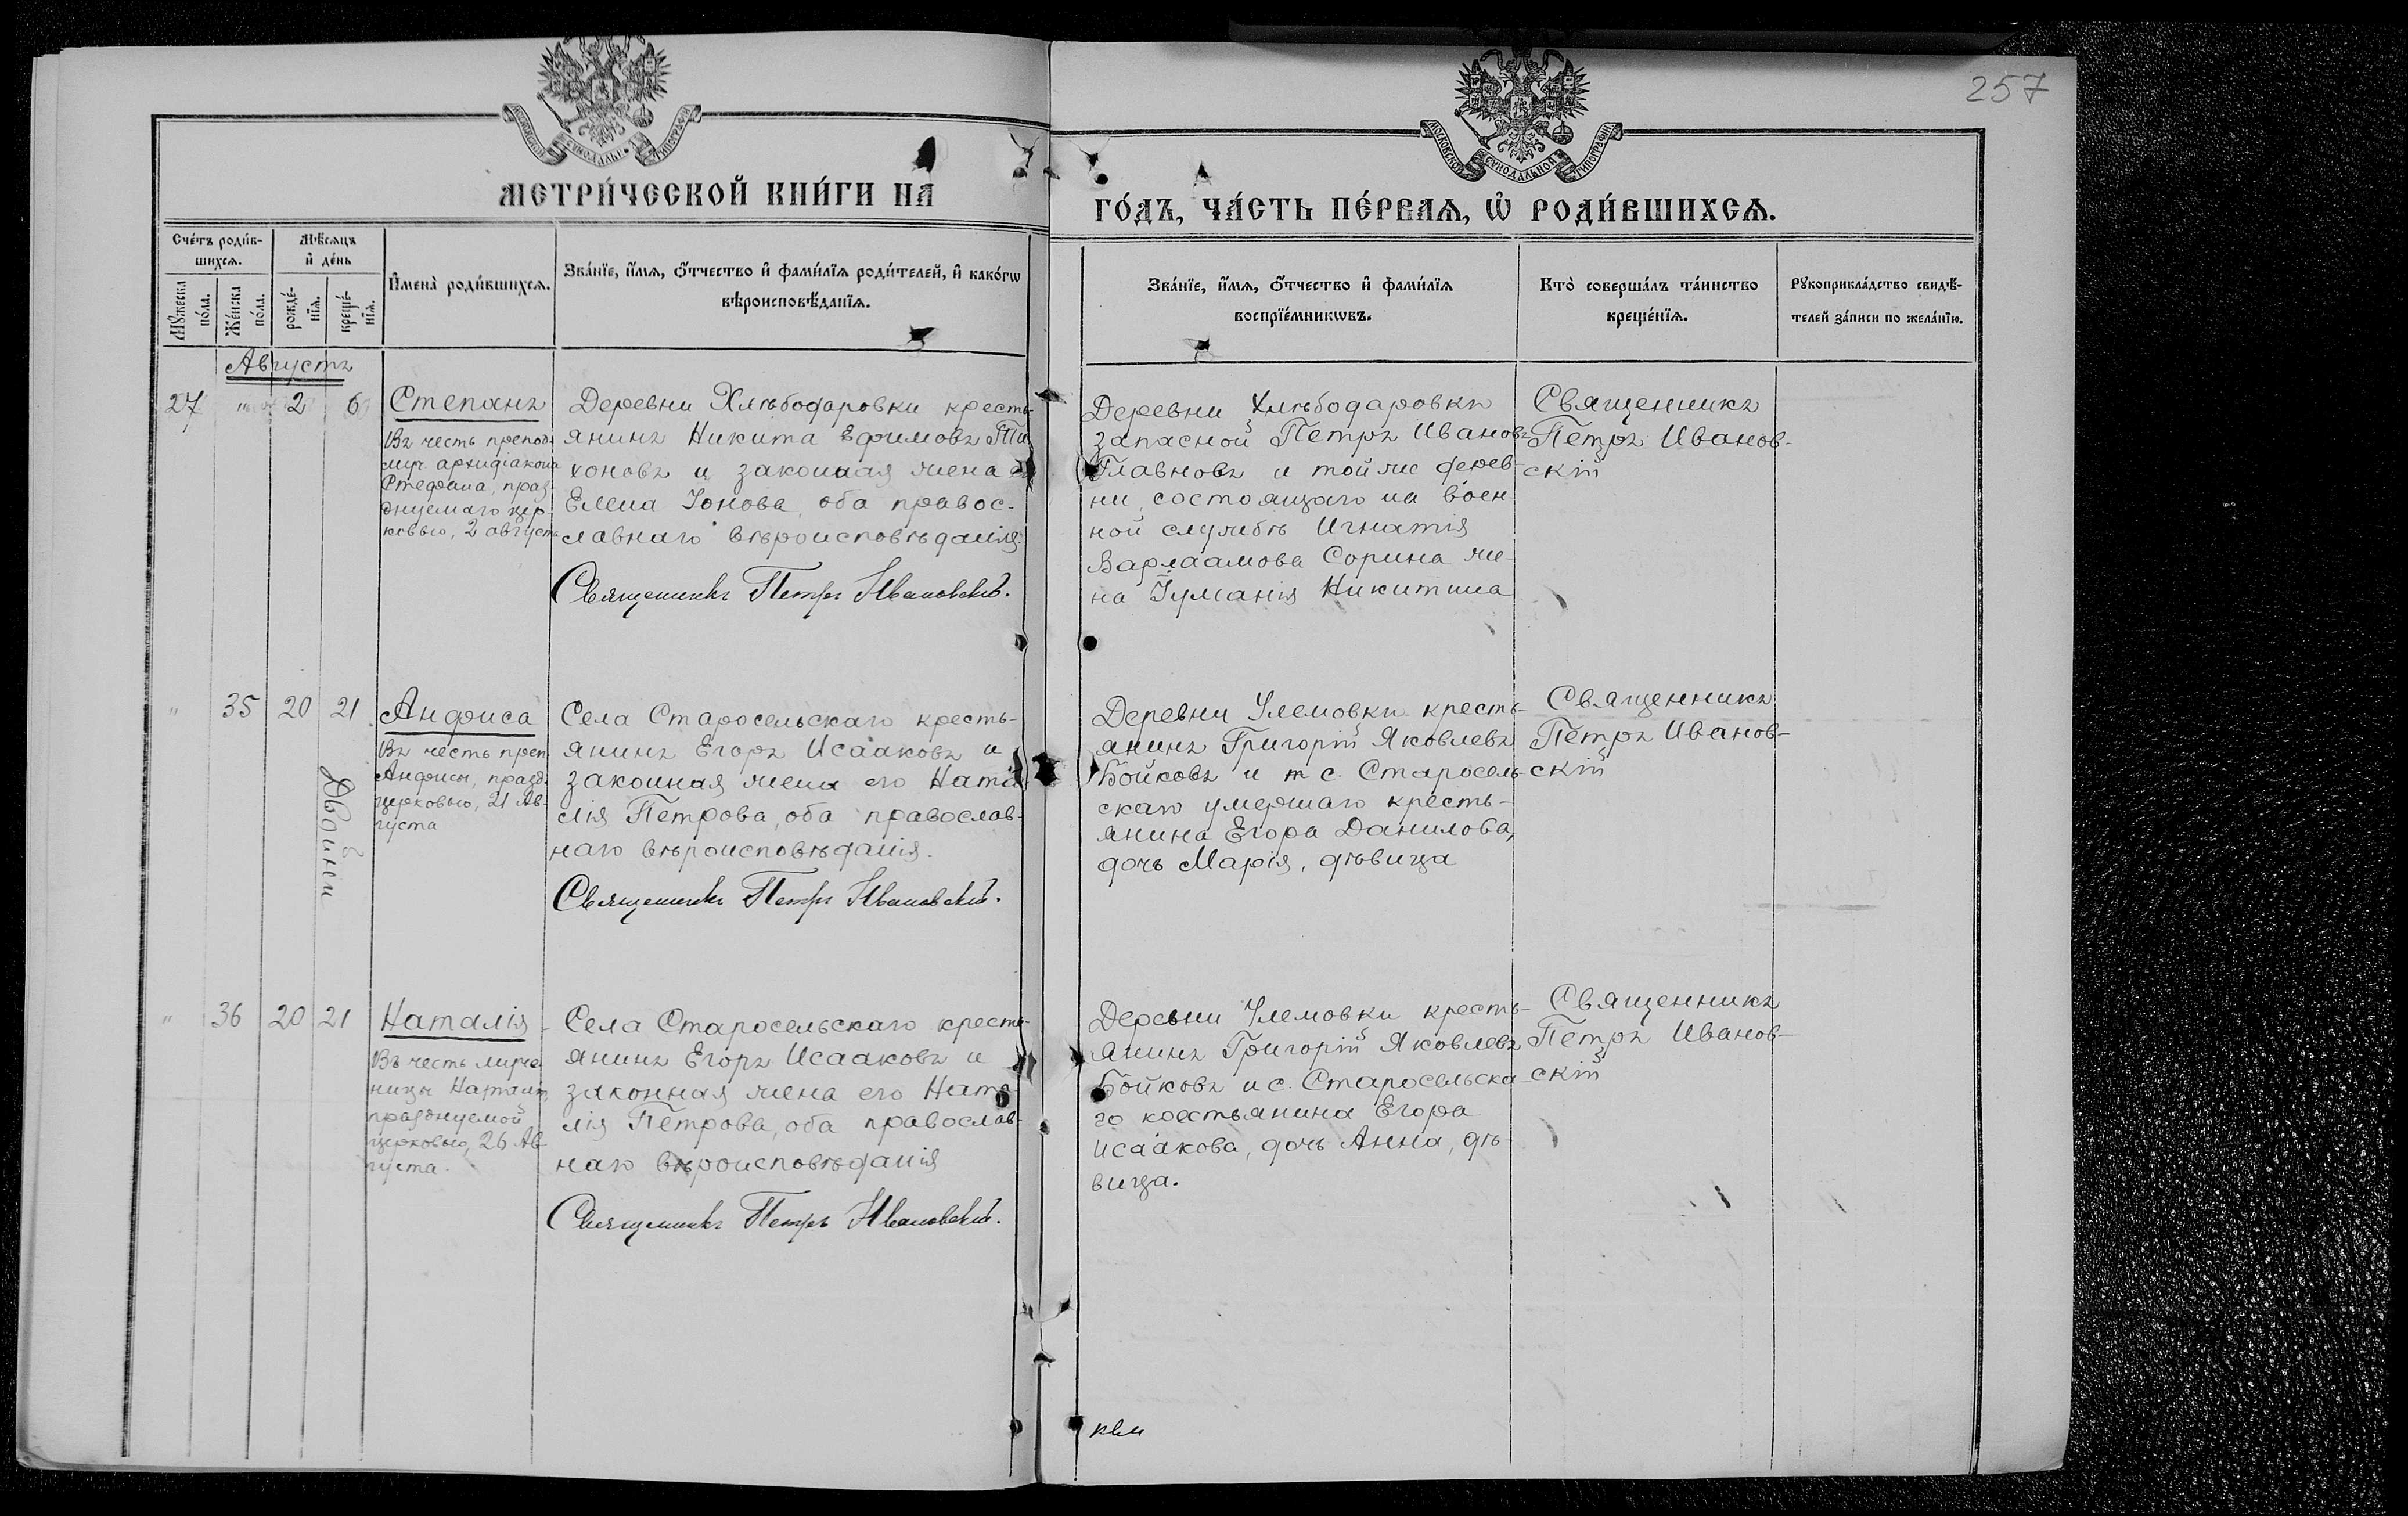 257
МОСКОВСКОЙ СѴНОДАЛЬНОЙ ТИПОГРАФІИ
МОСКОВСКОЙ СѴНОДАЛЬНОЙ ТИПОГРАФІИ
МЕТРИ́ЧЕСКОЙ КНИ́ГИ НА
ГО́ДЪ, ЧА́СТЬ ПЕ́РВАѦ, Ѡ҆ РОДИ́ВШИХСѦ.
Сче́тъ роди́в-
шихсѧ.
Мꙋ́жеска
по́ла.
Же́нска
по́ла.
Мѣ́сѧцъ
и҆ де́нь
рожде́-
нїѧ.
креще́-
нїѧ.
И҆мена̀ роди́вшихсѧ.
Зва́нїе, и҆́мѧ, ѻ҆́тчество и҆ фами́лїѧ роди́телей, и҆ како́гѡ
вѣроисповѣ́данїѧ.
Зва́нїе, и҆́мѧ, ѻ҆́тчество и҆ фами́лїѧ
воспрїе́мникѡвъ.
Кто̀ соверша́лъ та́инство
креще́нїѧ.
Рꙋкоприкла́дство свидѣ́-
телей за́писи по жела́нїю.
Августъ
27 " 2 6
Степанъ
Въ честь препод.
муч. архидіакона
Стефана, праз-
днуемаго цер-
ковью, 2 августа
Деревни Хлѣбодаровки кресть-
янинъ Никита Ефимовъ Ти-
хоновъ и законная жена его
Елена Іонова, оба правос-
лавнаго вѣроисповѣданія.
Священникъ Петръ Ивановскій.
Деревни Хлѣбодаровки
запасной Петръ Ивановъ
Главновъ и той же дерев-
ни, состоящаго на воен-
ной службѣ Игнатія
Варлаамова Сорина же-
на Іуманія Никитина
Священникъ
Петръ Иванов-
скій
" 35 20 21
Двойни
Анфиса
Въ честь преп.
Анфисы, празд.
церковью, 21 Ав-
густа
Села Старосельскаго кресть-
янинъ Егоръ Исааковъ и
законная жена его Ната-
лія Петрова, оба православ-
наго вѣроисповѣданія.
Священникъ Петръ Ивановскій.
Деревни Улемовки кресть-
янинъ Григорій Яковлевъ
Бойковъ и с. Старосель-
скаго умершаго кресть-
янина Егора Данилова,
дочь Марія, дѣвица
Священникъ
Петръ Иванов-
скій
" 36 20 21
Наталія
Въ честь муче-
ницы Наталіи,
празднуемой
церковью, 26 Ав-
густа.
Села Старосельскаго кресть-
янинъ Егоръ Исааковъ и
законная жена его Ната-
лія Петрова, оба православ-
наго вѣроисповѣданія
Священникъ Петръ Ивановскій.
Деревни Улемовки кресть-
янинъ Григорій Яковлевъ
Бойковъ и с. Старосельска-
го крестьянина Егора
Исаакова, дочь Анна, дѣ-
вица.
Священникъ
Петръ Иванов-
скій